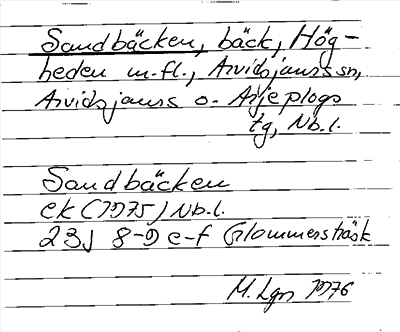 Sandbäcken, bäck, Hög-
heden m.fl., Arvidsjaurs sn,
Arvidsjaurs o. Arjeplogs
tg, Nb.l.
Sandbäcken
ek (1975) Nb.l.
23J 8-9 e-f Glommersträsk
M. Lgn 1976